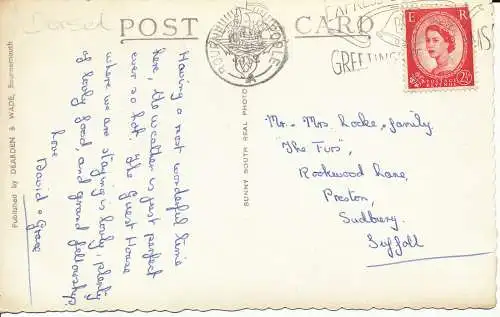 Dorset
POST CARD
EXPRESS
GREETINGS
E R
POSTAGE REVENUE
2½D
Published by DEARDEN & WADE, Bournemouth
SUNNY SOUTH REAL PHOTO
Having a most wonderful time
here, the weather is just perfect
ever so hot. The Guest House
where we are staying is lovely, plenty
of lovely food and grand fellowship.
Love
David & Grace
Mr. Mrs. Locke & family,
"The Firs",
Rookwood Lane,
Preston,
Sudbury,
Suffolk